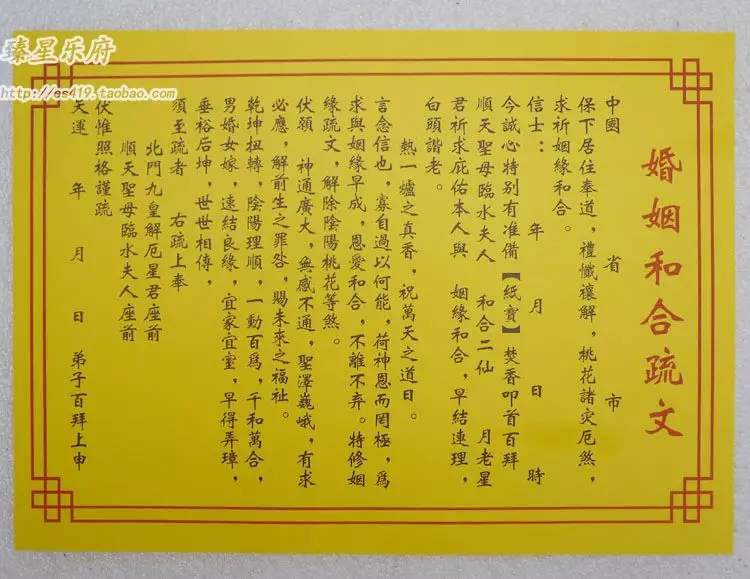 臻星乐府
http://es419.taobao.com
婚姻和合疏文
中國 省 市
保下居住奉道，禮懺禳解，桃花諸灾厄煞，
求祈姻緣和合。
信士： 年 月 日 時
今誠心特别有准備【紙寶】焚香叩首百拜
順天聖母臨水夫人 和合二仙 月老星
君祈求庇佑本人與 姻緣和合，早結連理，
白頭諧老。
熱一爐之真香，祝萬天之道日。
言念信也，寡自過以何能，荷神恩而罔極，爲
求與姻緣早成，恩愛和合，不離不弃。特修姻
緣疏文，解除陰陽桃花等煞。
伏願 神通廣大，無感不通，聖澤巍峨，有求
必應，解前生之罪咎，賜未來之福祉。
乾坤扭轉，陰陽理順，一動百爲，千和萬合，
男婚女嫁，速結良緣，宜家宜室，早得弄璋，
垂裕后坤，世世相傳，
須至疏者 右疏上奉
北門九皇解厄星君座前
順天聖母臨水夫人座前
伏惟照格謹疏
天運 年 月 日 弟子百拜上申